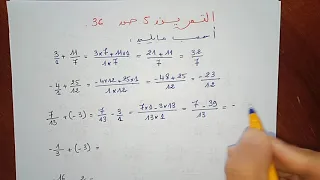 التمرين 5 ص 36.
أحسب مايلي:
3/1 + 11/7 = (3×7+11×1)/(1×7) = (21+11)/7 = 32/7
-4/1 + 25/12 = (-4×12+25×1)/(1×12) = (-48+25)/12 = -23/12
7/13 + (-3) = 7/13 - 3/1 = (7×1-3×13)/(13×1) = (7-39)/13 = -
-1/3 + (-3) =
16 2